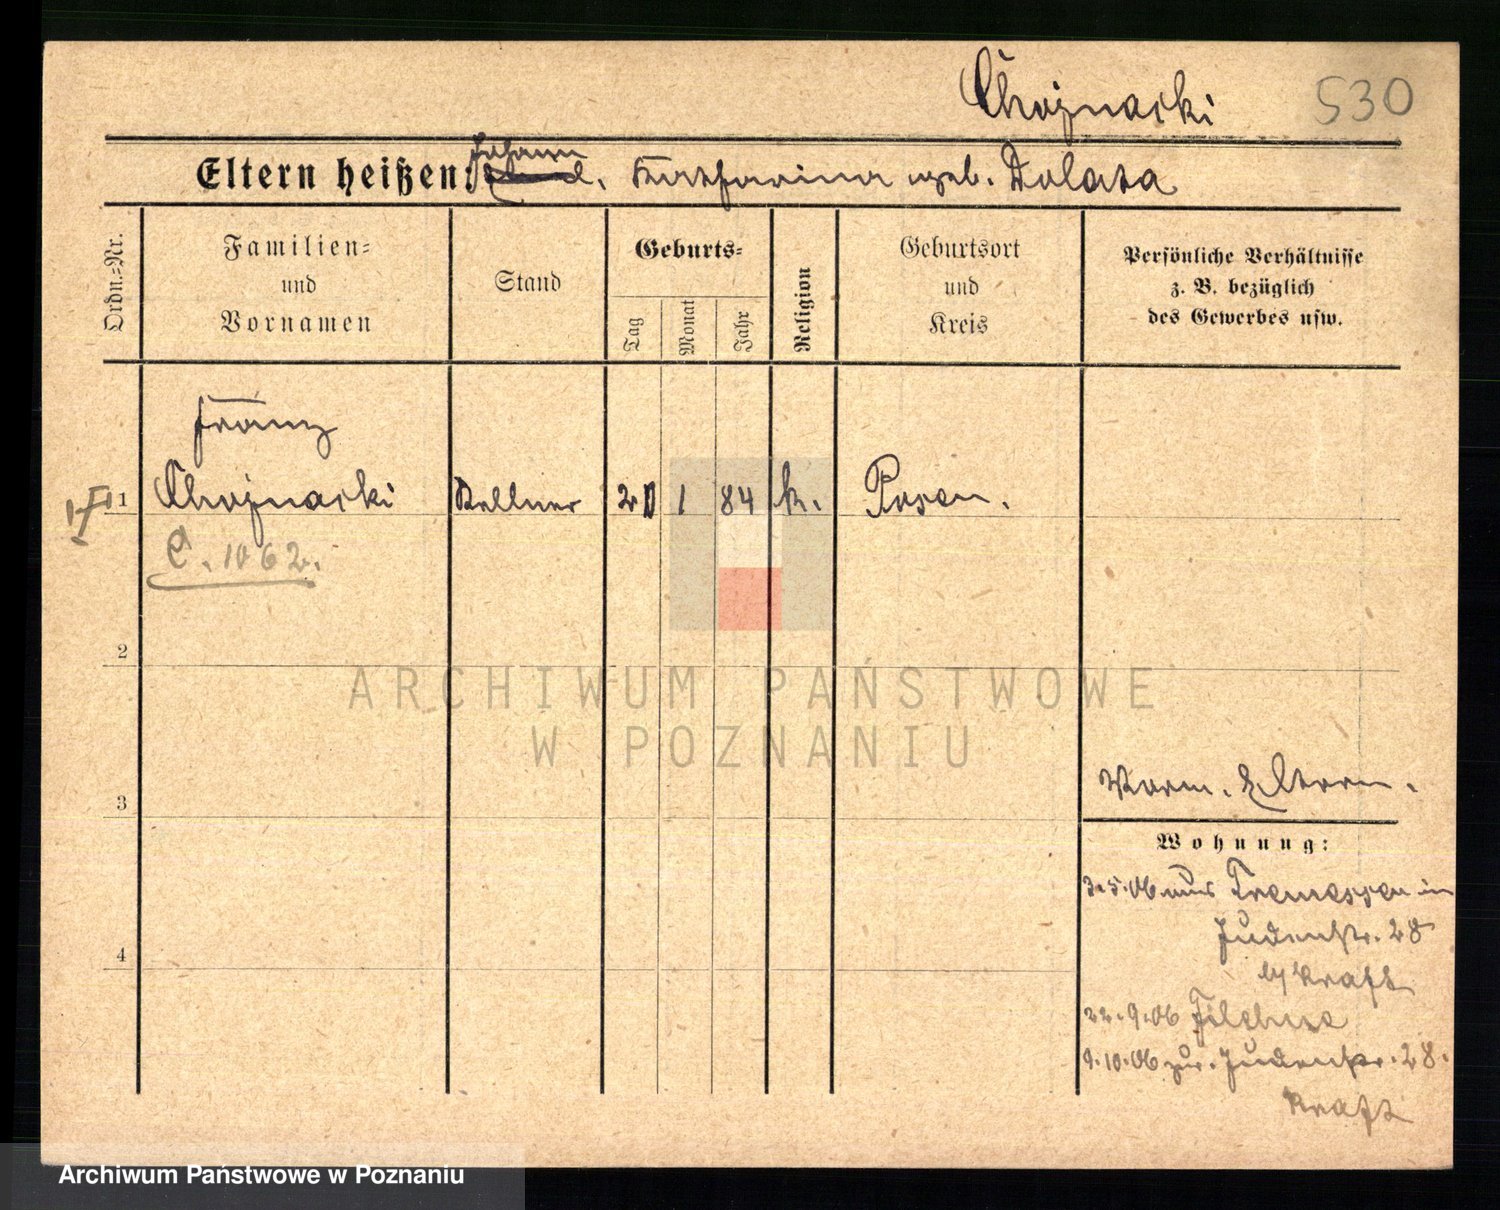 Chojnacki 530
Eltern heißen: Johann
Katharina geb. Dolata
Ordn.-Nr.
Familien-
und
Vornamen
Stand
Geburts-
Tag
Monat
Jahr
Religion
Geburtsort
und
Kreis
Persönliche Verhältnisse
z. B. bezüglich
des Gewerbes usw.
Franz
1 Chojnacki Kellner 1 84 k. Posen.
C. 1062.
2
3
Eltern.
Wohnung:
3.5.06 aus Tremessen in
Judenstr. 28
b/ Kraft
22.9.06 Filehne
9.10.06 zur. Judenstr. 28.
Kraft
4
ARCHIWUM PAŃSTWOWE
W POZNANIU
Archiwum Państwowe w Poznaniu